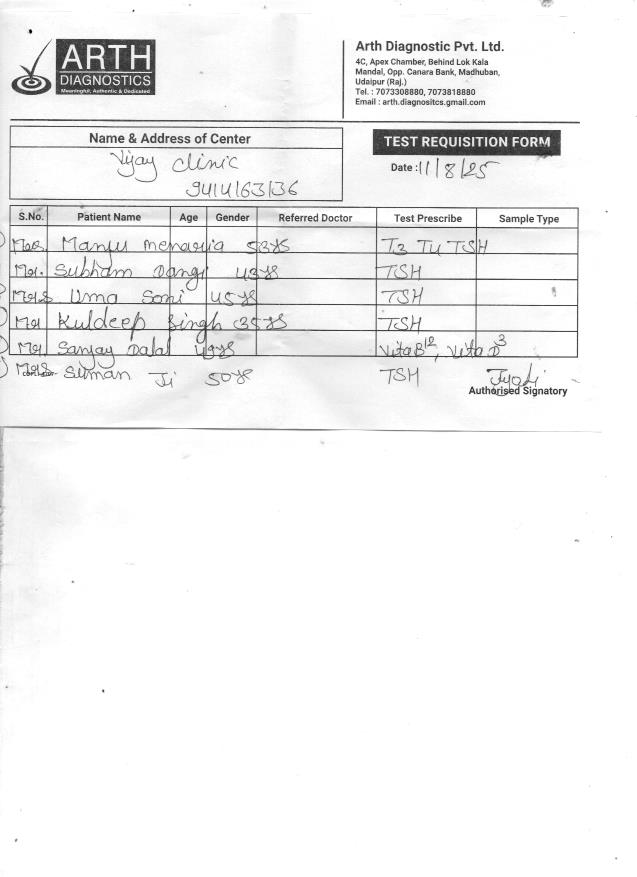 ARTH
DIAGNOSTICS
Meaningful, Authentic & Dedicated
Arth Diagnostic Pvt. Ltd.
4C, Apex Chamber, Behind Lok Kala
Mandal, Opp. Canara Bank, Madhuban,
Udaipur (Raj.)
Tel. : 7073308880, 7073818880
Email : arth.diagnositcs.gmail.com
Name & Address of Center
Vijay Clinic
9414163136
TEST REQUISITION FORM
Date : 11/8/25
S.No. Patient Name Age Gender Referred Doctor Test Prescribe Sample Type
Manju menaria 53ys T3 T4 TSH
Mr. Subham Dangi 43ys TSH
Mrs Uma Soni 45ys TSH
Mr Kuldeep Singh 35ys TSH
Mr. Sanjay Dalal 49ys Vita B12, Vita D3
Mrs Suman Ji 50ys TSH
Jyoti
Authorised Signatory